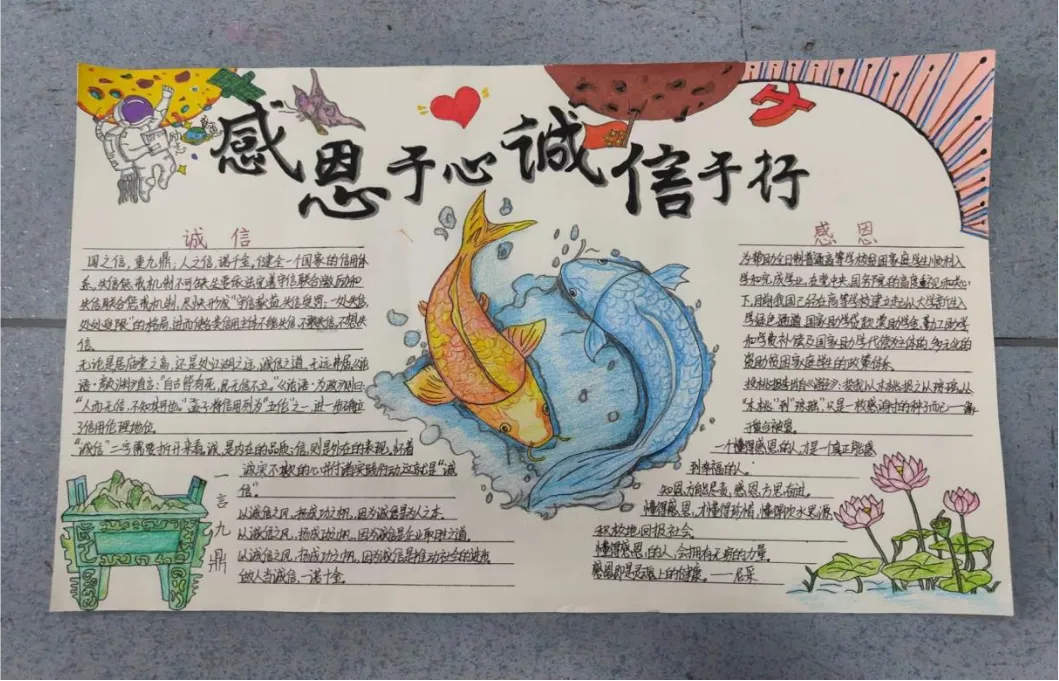 感恩于心诚信于行
感恩
励志
诚信
国之信，重九鼎；人之信，诺千金。健全一个国家的信用体
系，失信惩戒机制不可缺少要依法完善守信联合激励和
失信联合惩戒机制，尽快形成“守信教益，失信受罚，一处失信，
处处受限”的格局，进而使各类信用主体不能失信、不敢失信、不想失
信。
无论是居庙堂之高，还是处江湖之远，诚信之道，无远弗届《论
语·颜渊》直言：“自古皆有死，民无信不立。”《论语·为政》则曰：
“人而无信，不知其可也。”孟子将信用列为“五伦”之一，进一步确立
了信用伦理地位。
“诚信”二字需要拆开来看，诚，是内在的品质；信，则是外在的表现，怀着
诚实不欺的心，并付诸实践行动这就是“诚
信”。
从诚信之风，扬成功之帆，因为诚信是为人之本。
从诚信之风，扬成功之帆，因为诚信是企业取胜之道。
从诚信之风，扬成功之帆，因为诚信是推动社会的进步。
做人当诚信，一诺千金。
一言九鼎
感恩
为帮助全日制普通高等学校家庭困难学生顺利入
学和完成学业，在党中央、国务院的高度重视和关心
下，目前我国已经在高等学校建立起从大学新生入
学绿色通道、国家助学贷款、奖助学金、勤工助学
和学费补偿及国家助学代偿为主体的、多元化的
资助贫困家庭学生的政策体系。
“木桃”到“琼瑶”，只是一枚感谢的种子而已
一个懂得感恩的人，才是一个真正能感
到幸福的人。
知恩方能尽责，感恩方思奋进。
懂得感恩，才懂得珍惜，懂得饮水思源
积极地回报社会。
懂得感恩的人，会拥有无穷的力量。
感恩即是灵魂上的健康。——尼采